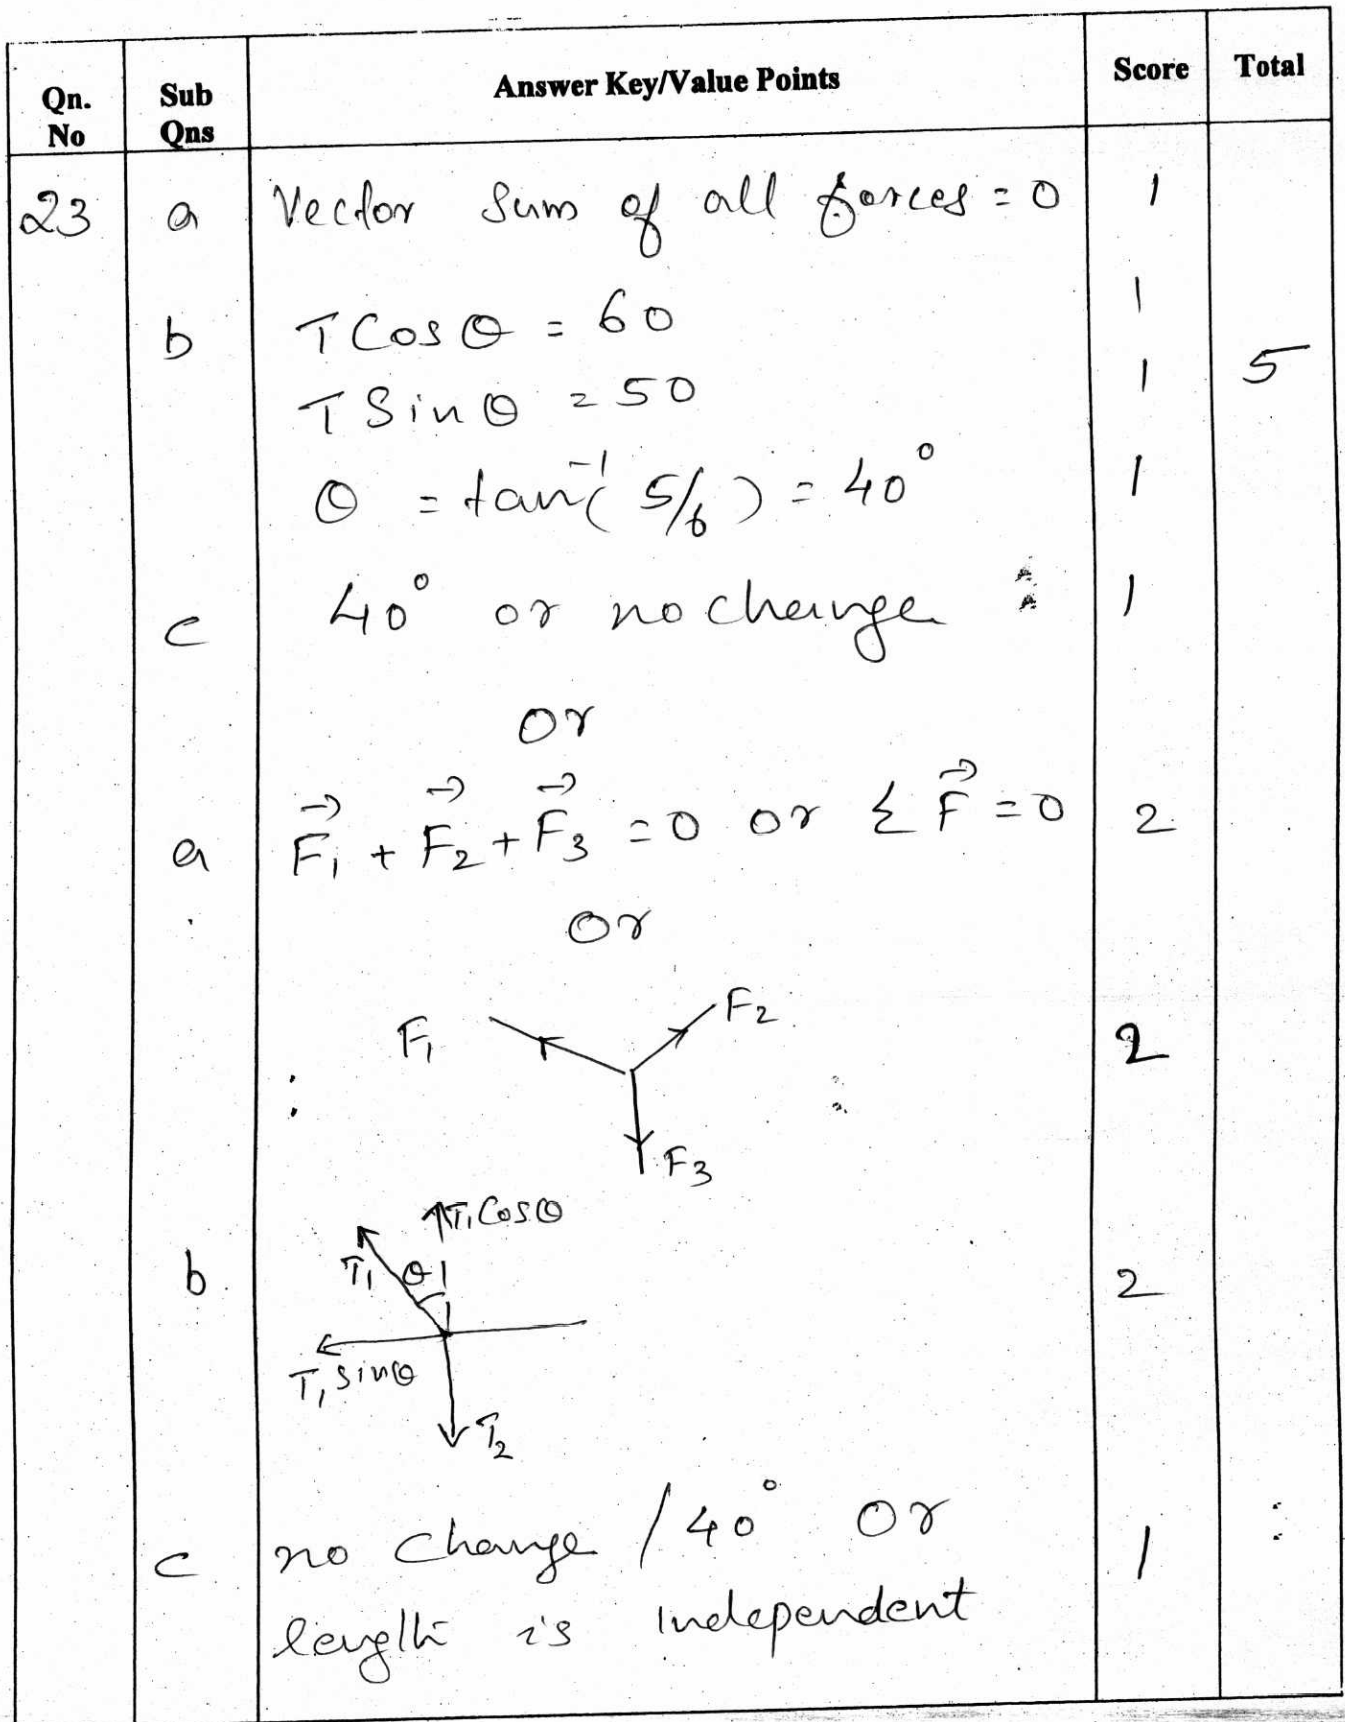 Qn. No Sub Qns Answer Key/Value Points Score Total
23 a Vector Sum of all forces = 0 1
b T Cos θ = 60 1
T Sin θ = 50 1 5
θ = tan⁻¹( 5/6 ) = 40° 1
c 40° or no change 1
or
a F⃗₁ + F⃗₂ + F⃗₃ = 0 or Σ F⃗ = 0 2
Or
F₁ F₂ 2
F₃
T₁ Cos θ
b T₁ θ 2
T₁ sin θ
T₂
c no change / 40° Or 1
length is independent